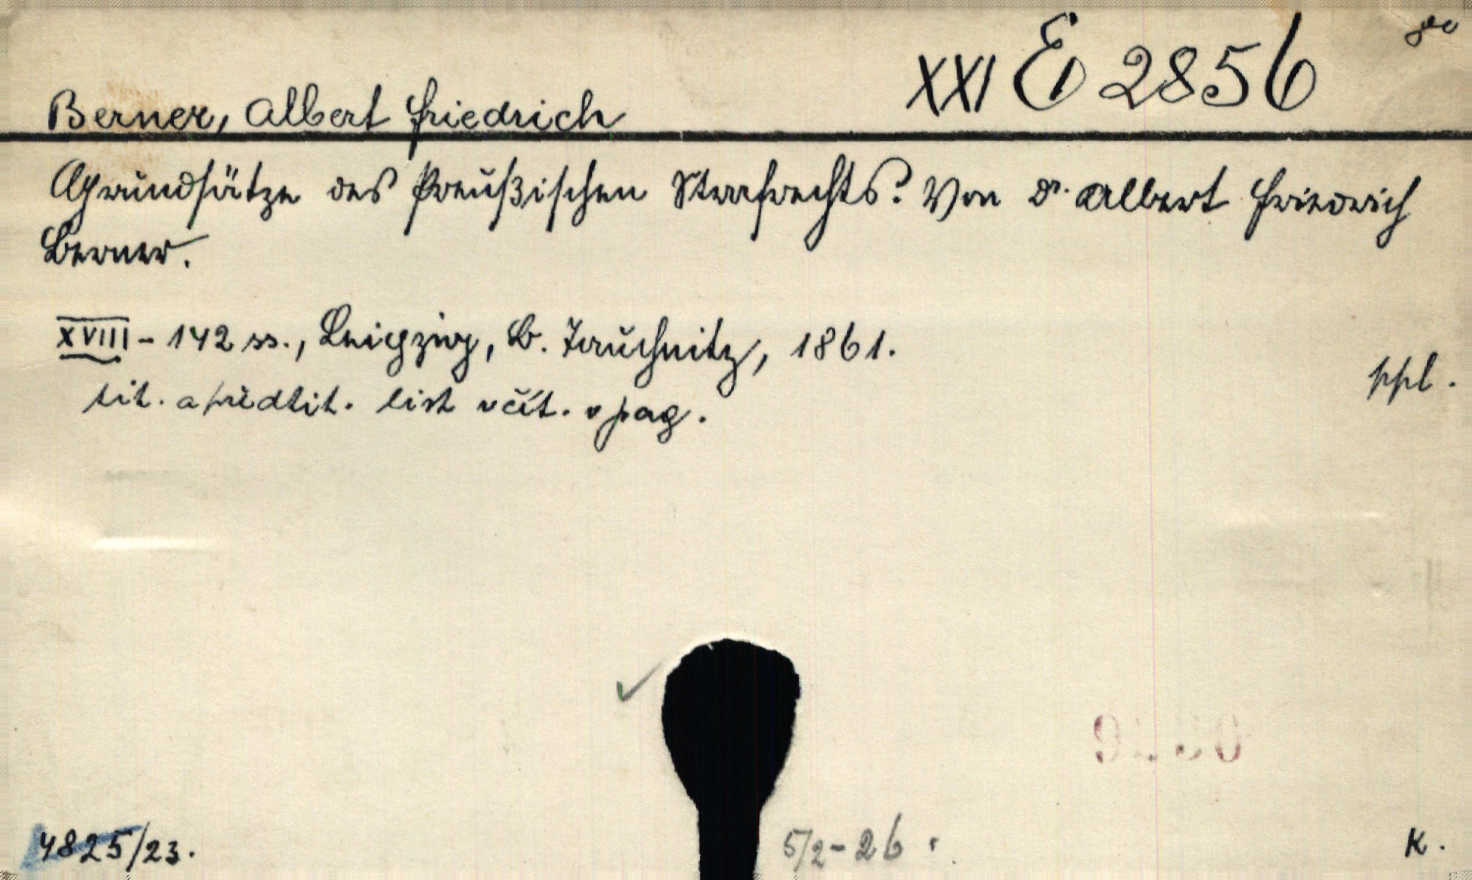 XXI E 2856 8°
Berner, Albert Friedrich
Grundsätze des Preußischen Strafrechts. Von Dr. Albert Friedrich
Berner.
XVIII - 142 ss., Leipzig, B. Tauchnitz, 1861.
ppl.
tit. a předtit. list včít. v pag.
4825/23.
5/2-26.
K.